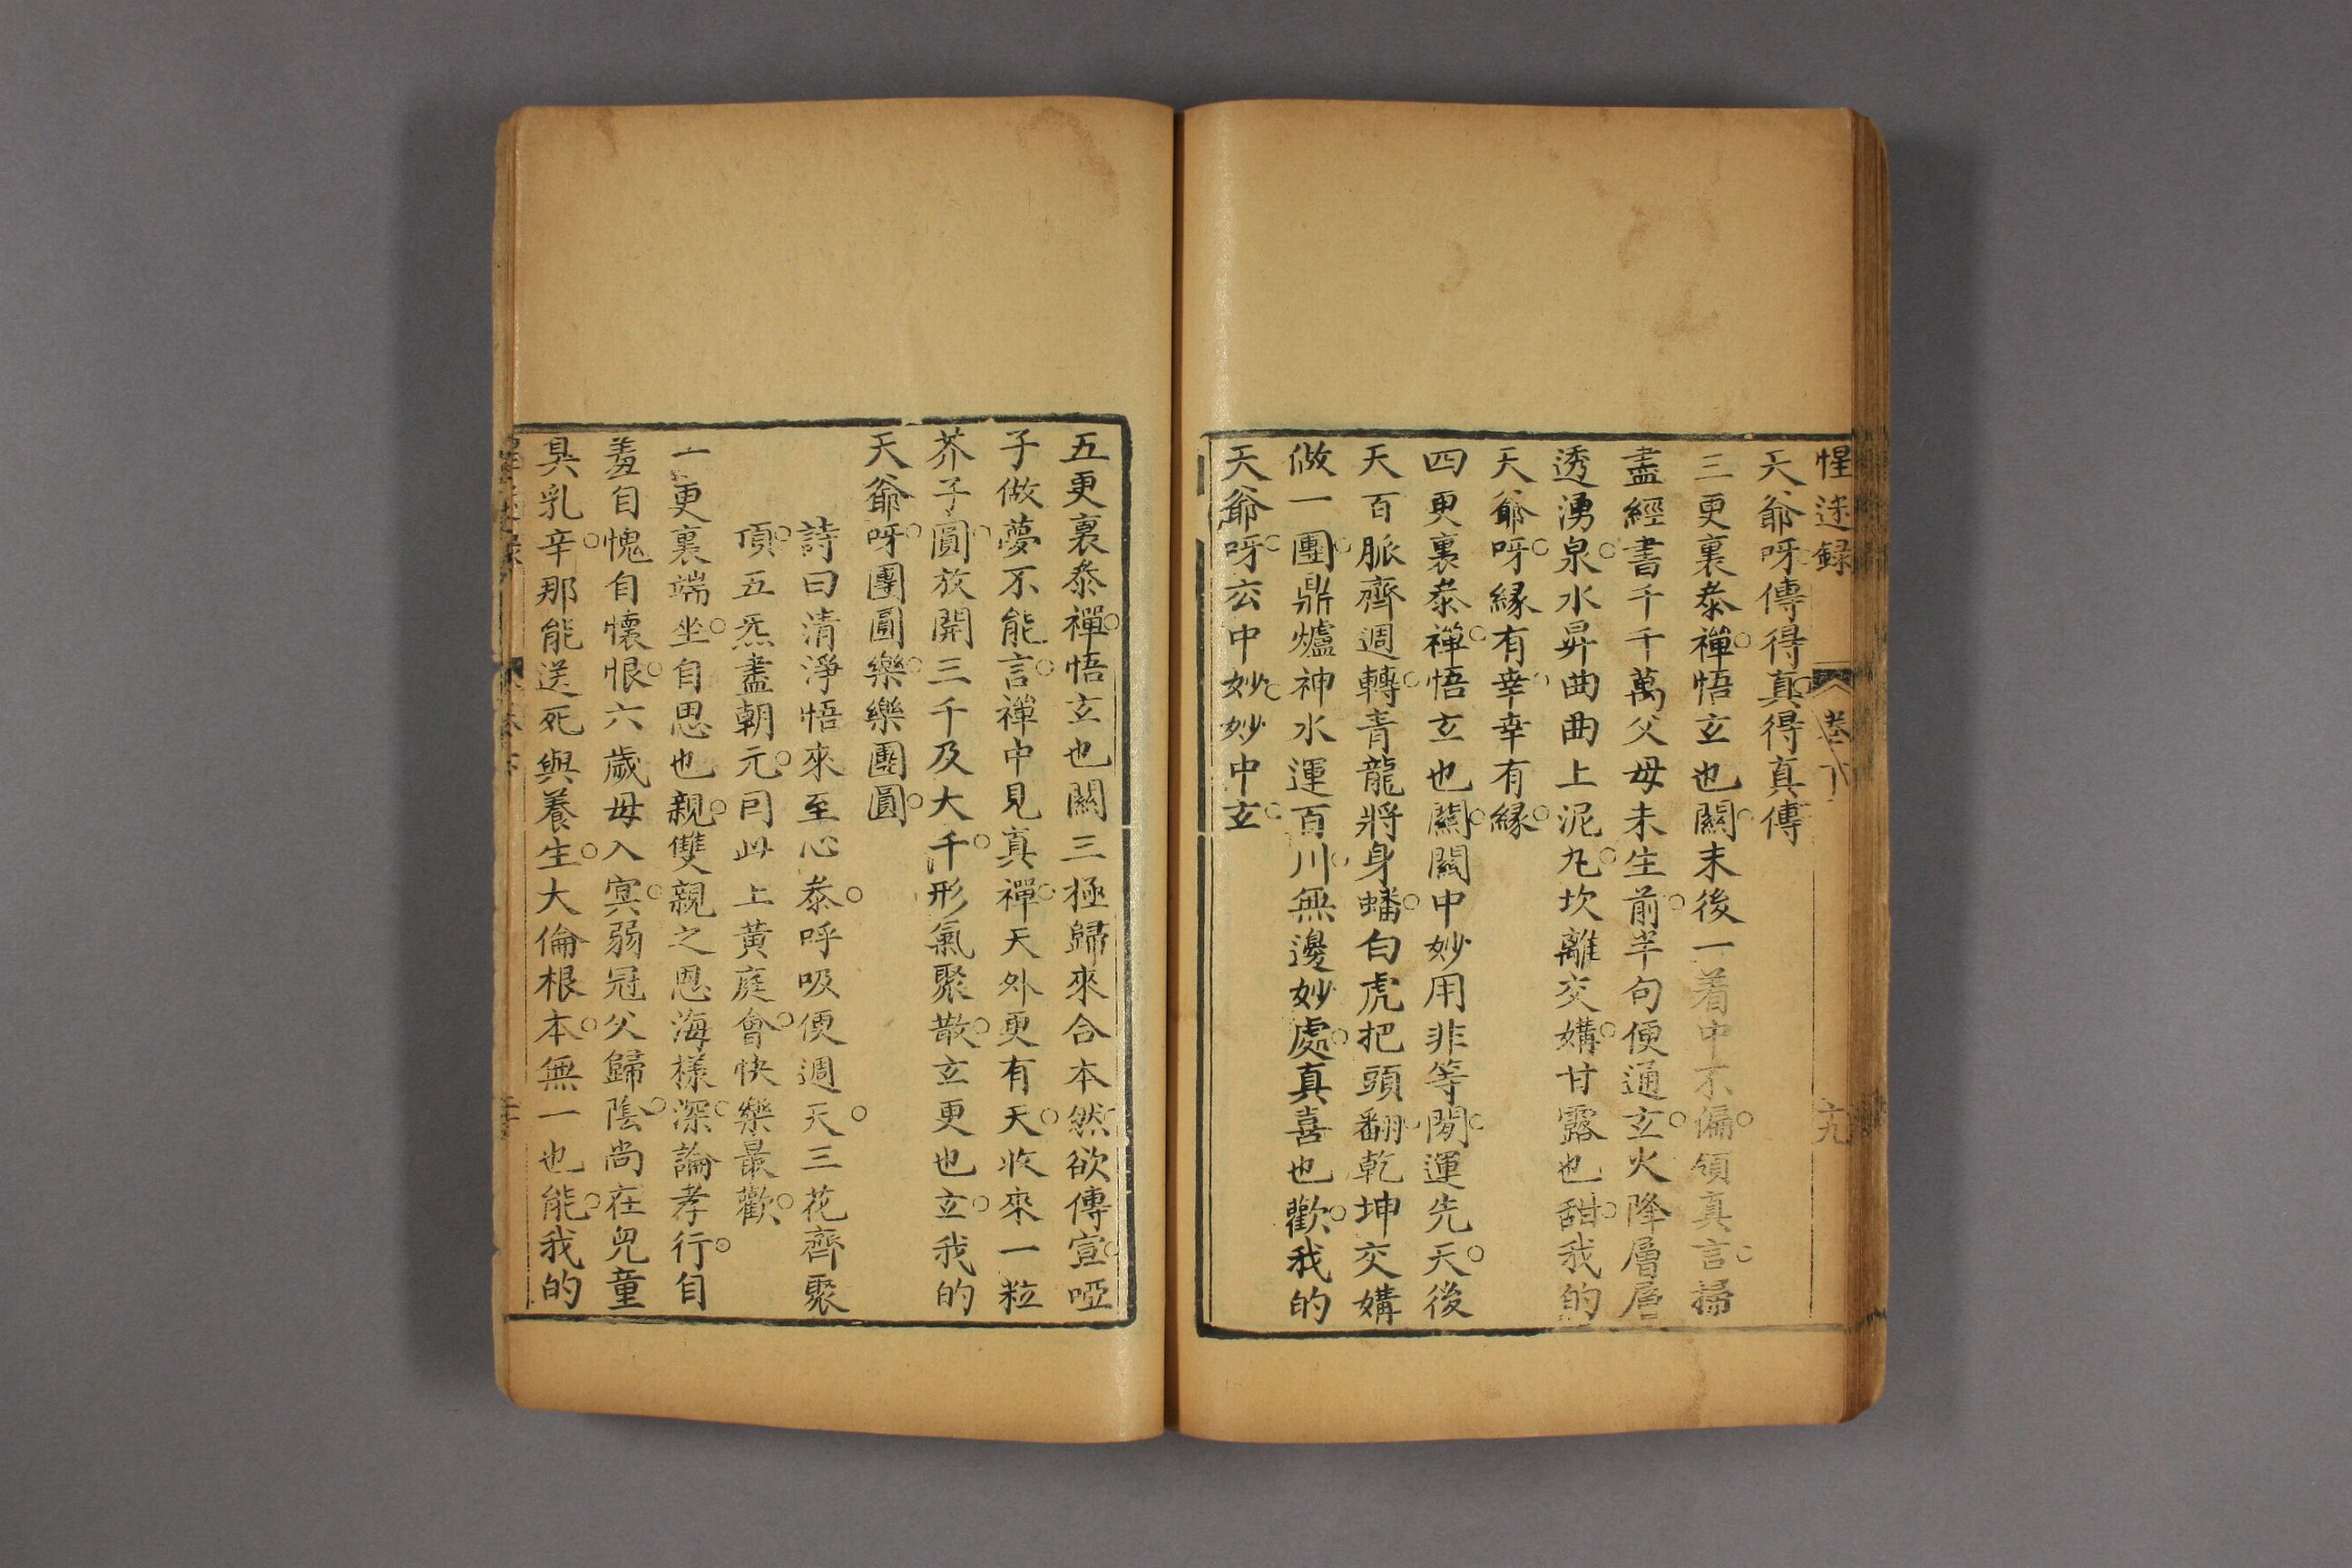 惺迷録 卷下 十九
天爺呀傳得真得真傳
三更裏叅禪悟玄也關末後一着中不偏領真言掃
盡經書千千萬父母未生前半句便通玄火降層層
透湧泉水昇曲曲上泥九坎離交媾甘露也甜我的
天爺呀緣有幸幸有緣
四更裏叅禪悟玄也關關中妙用非等閒運先天後
天百脈齊週轉青龍將身蟠白虎把頭翻乾坤交媾
做一團鼎爐神水運百川無邊妙處真喜也歡我的
天爺呀玄中妙妙中玄
五更裏叅禪悟玄也關三極歸來合本然欲傳宣啞
子做夢不能言禪中見真禪天外更有天收來一粒
芥子圓放開三千及大千形氣聚散玄更也玄我的
天爺呀團圓樂樂團圓
詩曰清淨悟來至心叅呼吸便週天三花齊聚
頂五炁盡朝元同此上黃庭會快樂最歡
一更裏端坐自思也親雙親之恩海樣深論孝行自
羞自愧自懷恨六歲母入冥弱冠父歸陰尚在兒童
臭乳辛那能送死與養生大倫根本無一也能我的